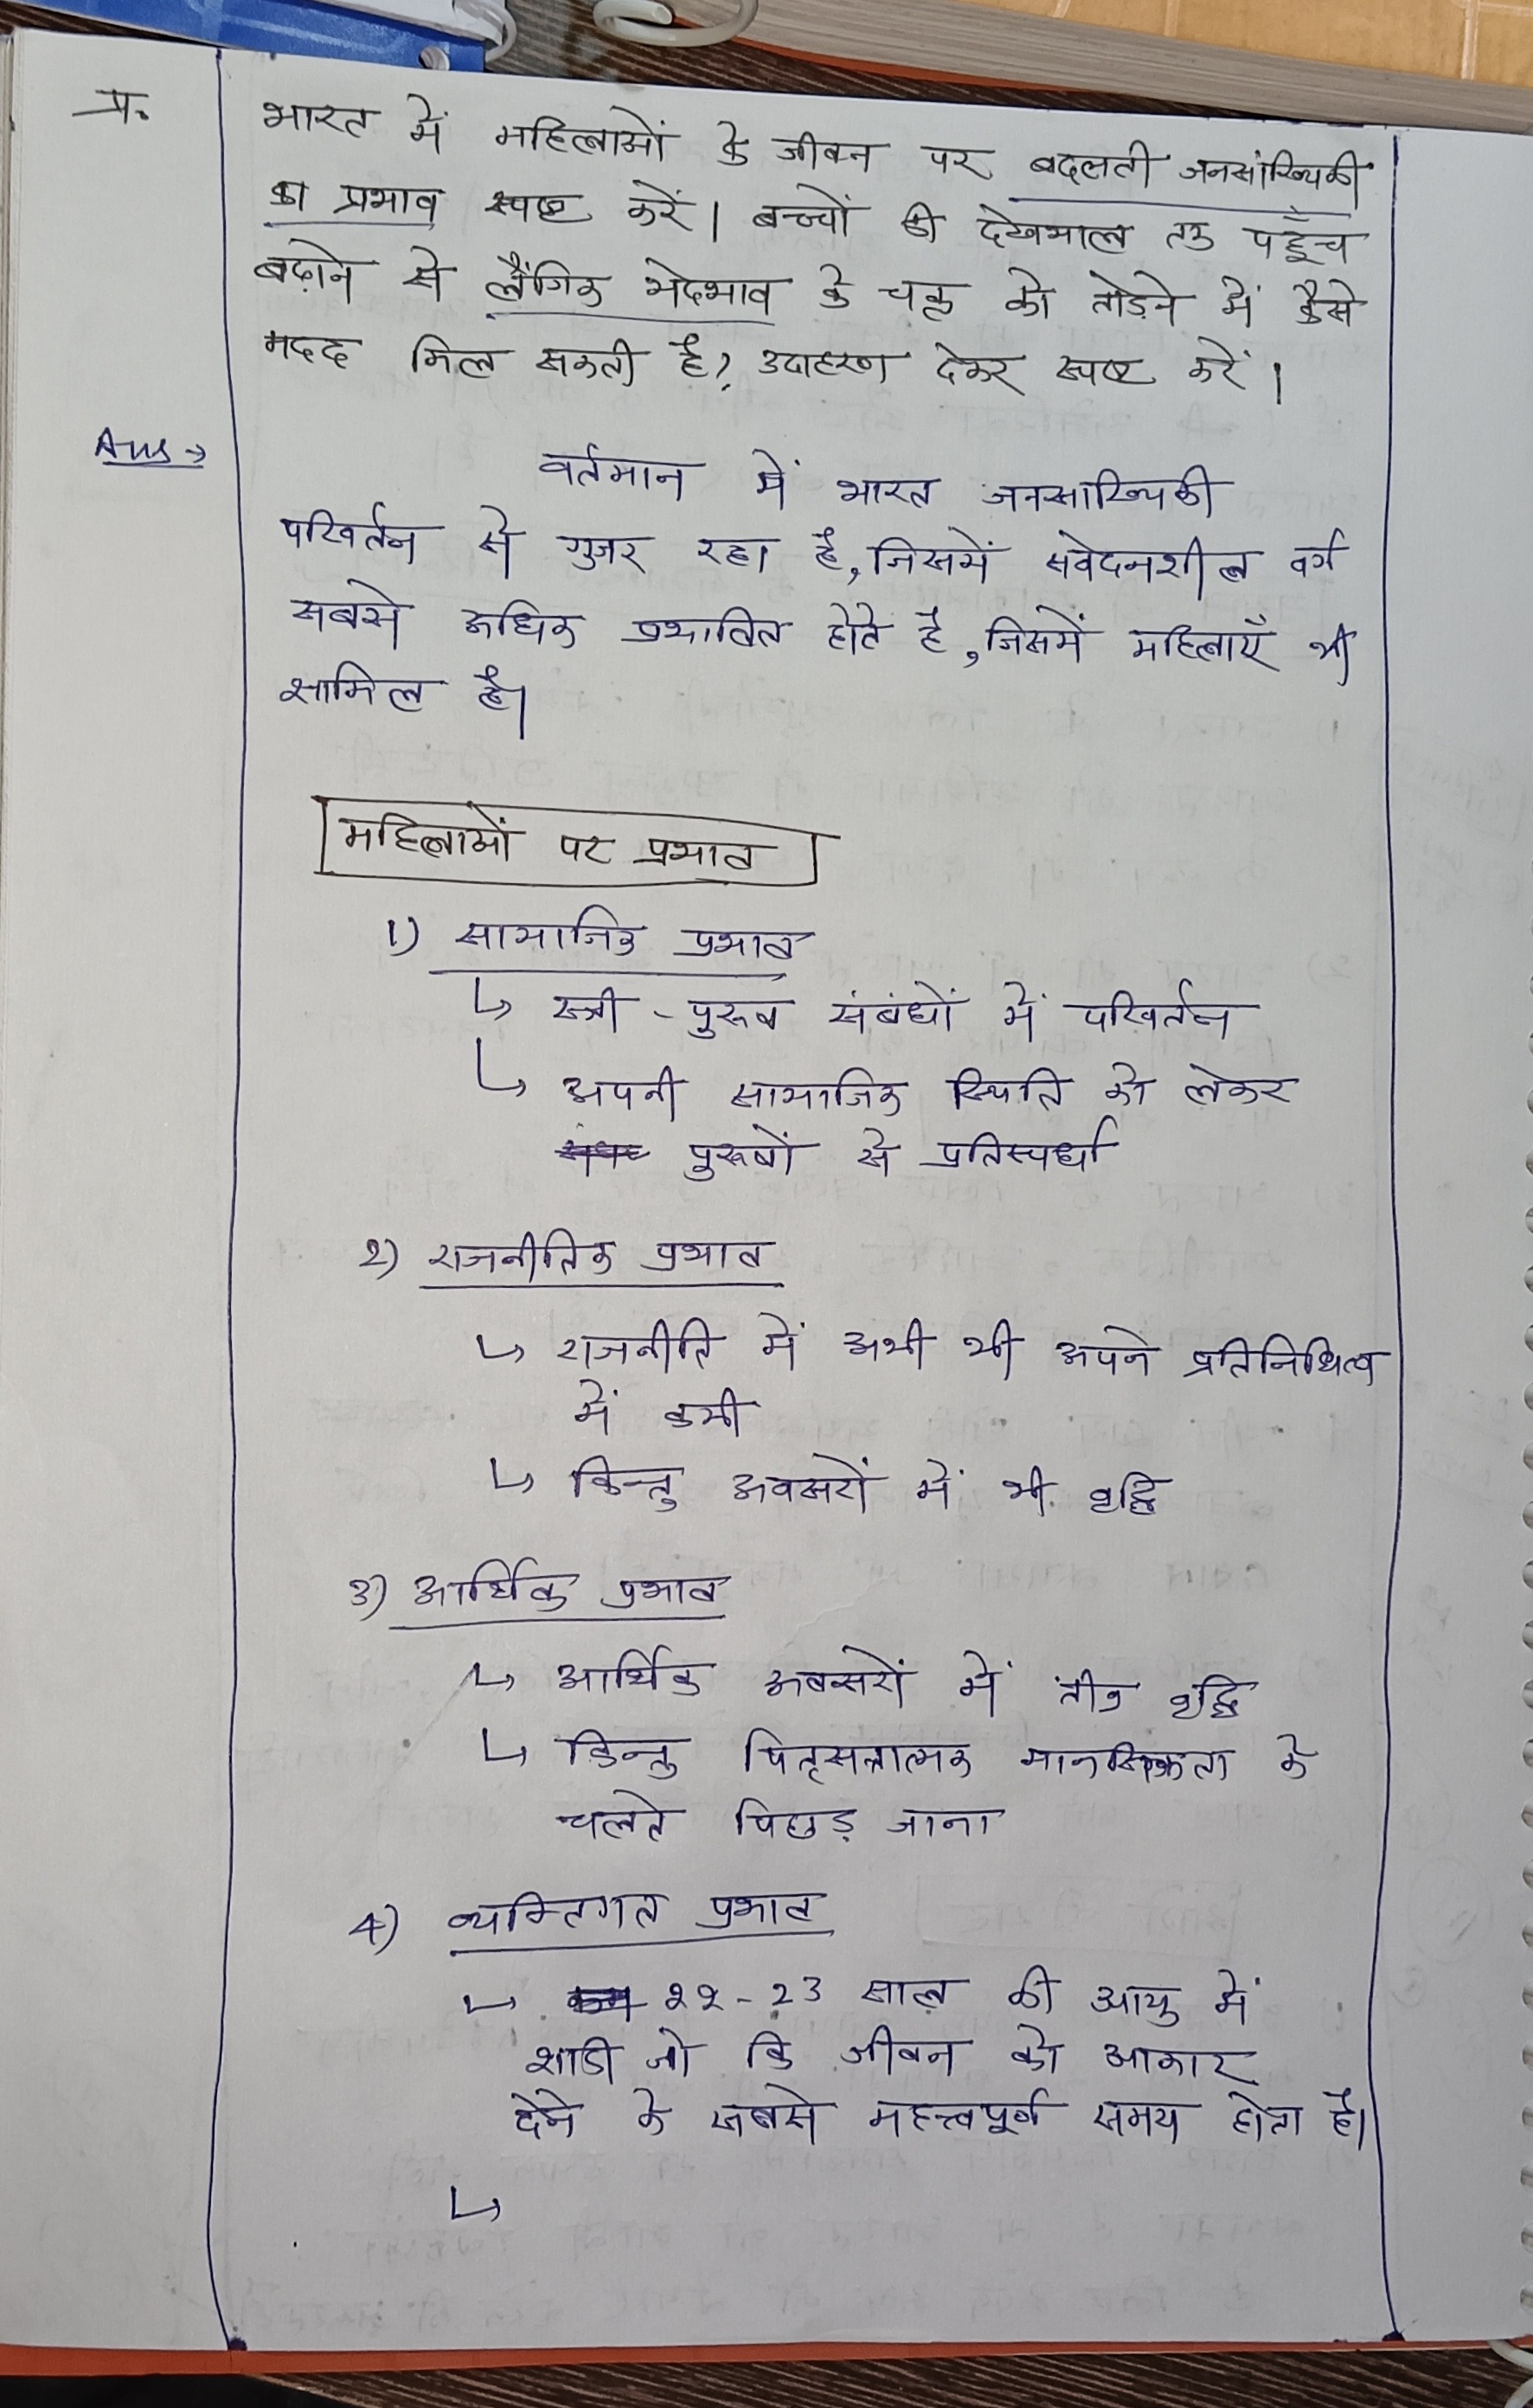 प्र. भारत में महिलाओं के जीवन पर बदलती जनसांख्यिकी
का प्रभाव स्पष्ट करें। बच्चों की देखभाल तक पहुँच
बढ़ाने से लैंगिक भेदभाव के चक्र को तोड़ने में कैसे
मदद मिल सकती है? उदाहरण देकर स्पष्ट करें।
Ans → वर्तमान में भारत जनसाख्यिकी
परिवर्तन से गुजर रहा है, जिसमें संवेदनशील वर्ग
सबसे अधिक प्रभावित होते है, जिसमें महिलाएँ भी
शामिल है।
महिलाओं पर प्रभाव
1) सामाजिक प्रभाव
↳ स्त्री - पुरूष संबंधों में परिवर्तन
↳ अपनी सामाजिक स्थिति को लेकर
पुरूषों से प्रतिस्पर्धा
2) राजनीतिक प्रभाव
↳ राजनीति में अभी भी अपने प्रतिनिधित्व
में कमी
↳ किन्तु अवसरों में भी वृद्धि
3) आर्थिक प्रभाव
↳ आर्थिक अवसरों में तीव्र वृद्धि
↳ किन्तु पितृसत्तात्मक मानसिकता के
चलते पिछड़ जाना
4) व्यक्तिगत प्रभाव
↳ 22-23 साल की आयु में
शादी जो कि जीवन को आकार
देने के सबसे महत्त्वपूर्ण समय होता है।
↳